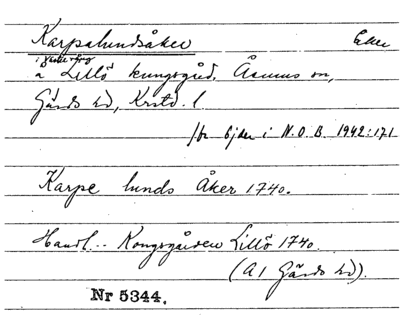 Karpalundsåker Eker
i Vester
a Lillö kungsgård, Åsmus sn,
Gärds hd, Krstd. l
fr. Ejder i N.O.B. 1942:171
Karpe lunds Åker 1740.
Handl.. Kongsgården Lillö 1740.
(A1 Gärds hd).
Nr 5344.